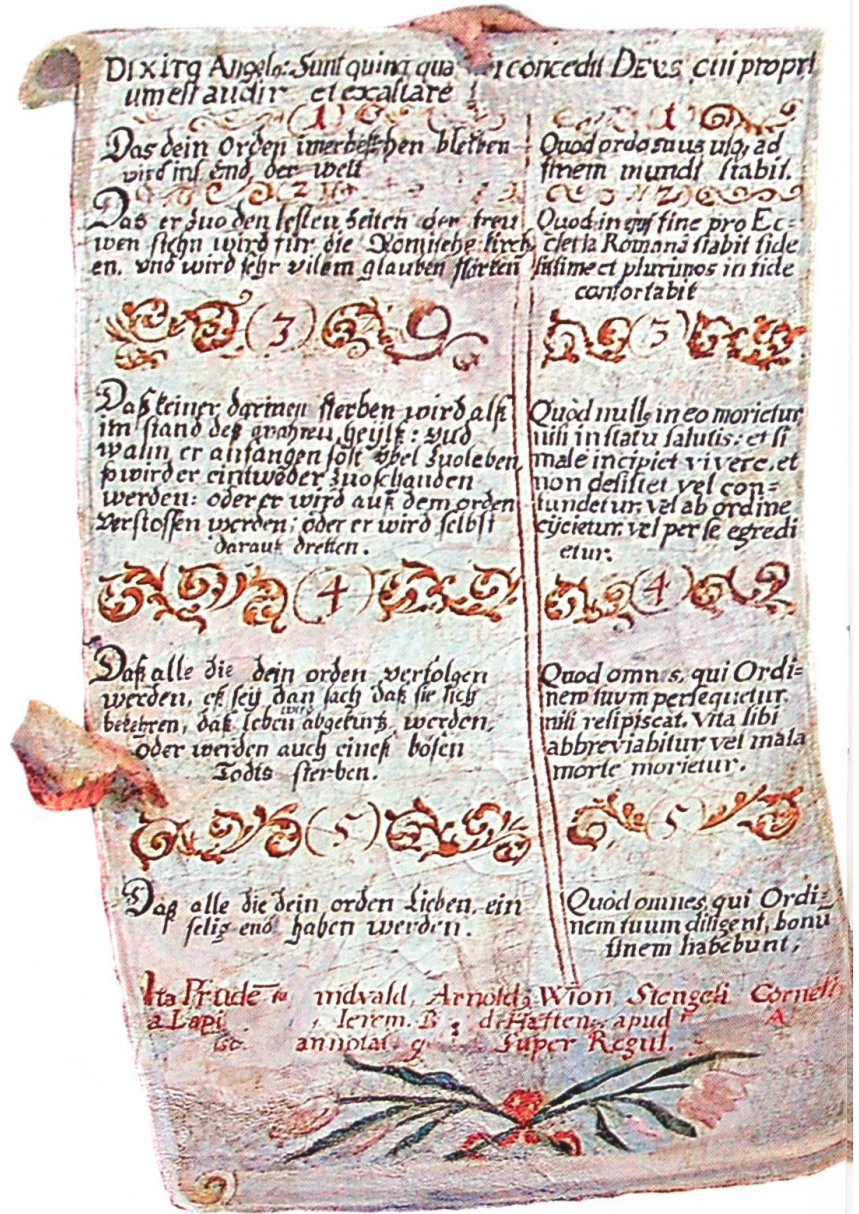 DIXITq Angelq: Sunt quinq qua concedit DEVS cui propri
um est audir et exaltare
(1)
Das dein Orden imerbestehen bleiben
wird ins End der welt
(2)
Das er zuo den lesten zeiten der treu
wen stehn wird für die Römische kirch
en. vnd wird sehr vilem glauben stärken
(3)
Daß keiner darinen sterben wird alß
im stand deß wahren heylß: vnd
wann er anfangen solt vbel zuoleben,
so wird er eintweder zuoschanden
werden: oder er wird auß dem orden
verstossen werden; oder er wird selbst
darauß dretten.
(4)
Daß alle die dein orden verfolgen
werden, eß sey dan sach daß sie sich
bekehren, daß leben wird abgekurtz werden,
oder werden auch eineß bösen
Todts sterben.
(5)
Daß alle die dein orden Lieben, ein
selig end haben werden.
(1)
Quod ordo tuus usq, ad
finem mundi stabit.
(2)
Quod in fine pro Ec=
clesia Romana stabit fide
lissime et plurimos in fide
confortabit
(3)
Quòd nullq in eo morietur
nisi in statu salutis: et si
male incipiet vivere, et
non desistet vel con=
fundetur, vel ab ordine
eijcietur, vel per se egredi
etur.
(4)
Quod omnes, qui Ordi=
nem tuum persequetur
nisi resipiscat, Vita sibi
abbreviabitur vel mala
morte morietur.
(5)
Quòd omnes qui Ordi=
nem tuum diligent, bonū
finem habebunt,
Ita Prudē mdvald, Arnoldq Wion Stengeli Corneli
a Lapi Ierem. B d. Haften apud A
annotat Super Regul.